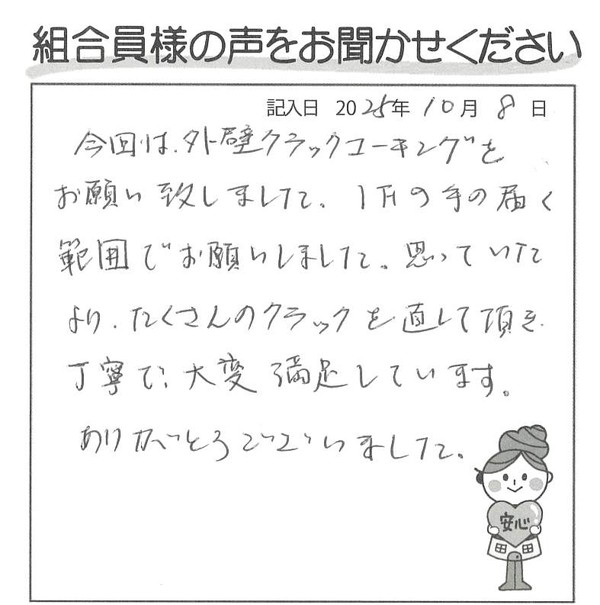 組合員様の声をお聞かせください
記入日 2025年 10月 8日
今回は、外壁クラックコーキングを
お願い致しました。1Fの手の届く
範囲でお願いしました。思っていた
より、たくさんのクラックを直して頂き、
丁寧で、大変満足しています。
ありがとうございました。
安心